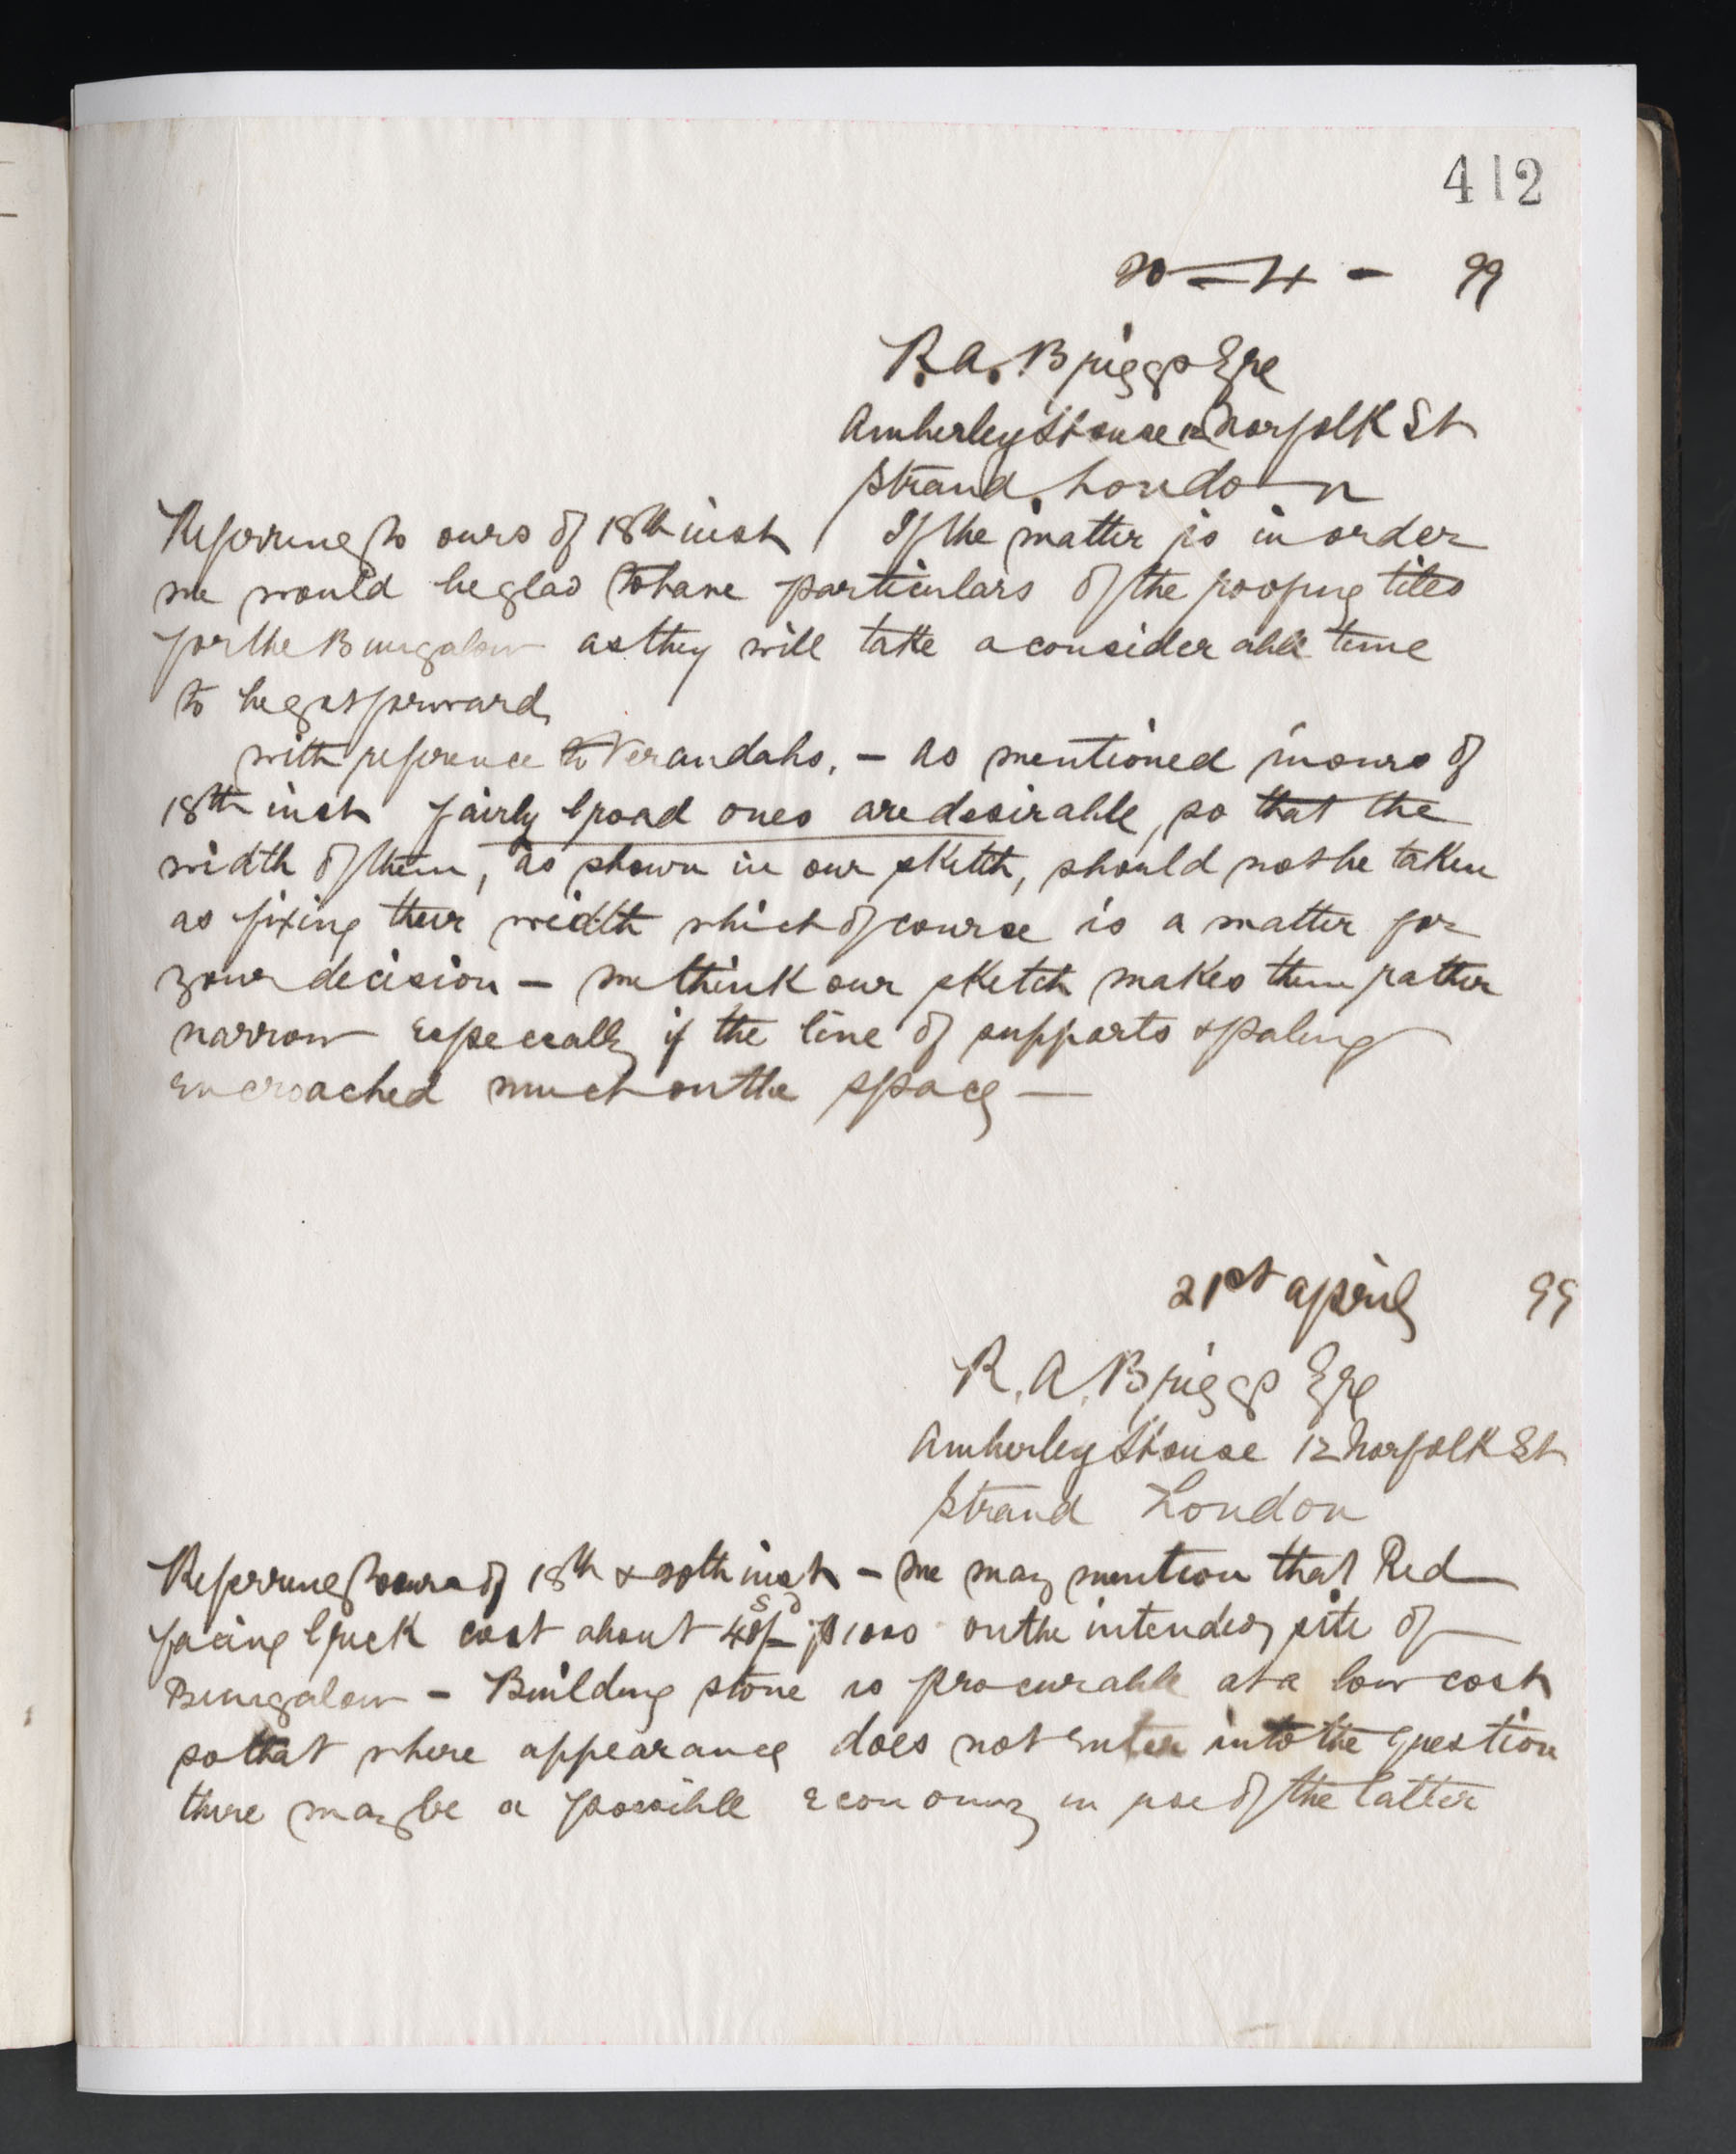 412
20 - 4 - 99
R. A. Briggs Esqe
Amberley House 12 Norfolk St
Strand, London
Referring to ours of 18th inst If the matter is in order
we would be glad to have particulars of the roofing tiles
for the Bungalow as they will take a considerable time
to be got forward
with reference to Verandahs. - As mentioned in ours of
18th inst fairly broad ones are desirable, so that the
width of them, as shown in our sketch, should not be taken
as fixing their width which of course is a matter for
your decision - we think our sketch makes them rather
narrow especially if the line of supports & paling
encroached much on the space -
21st April 99
R. A. Briggs Esqe
Amberley House 12 Norfolk St
Strand London
Referring to ours of 18th & 20th inst - we may mention that Red
facing brick cost about p 1000 on the intended site of
Bungalow - Building stone is procurable at a low cost
so that where appearance does not enter into the question
there may be a possible economy in use of the latter